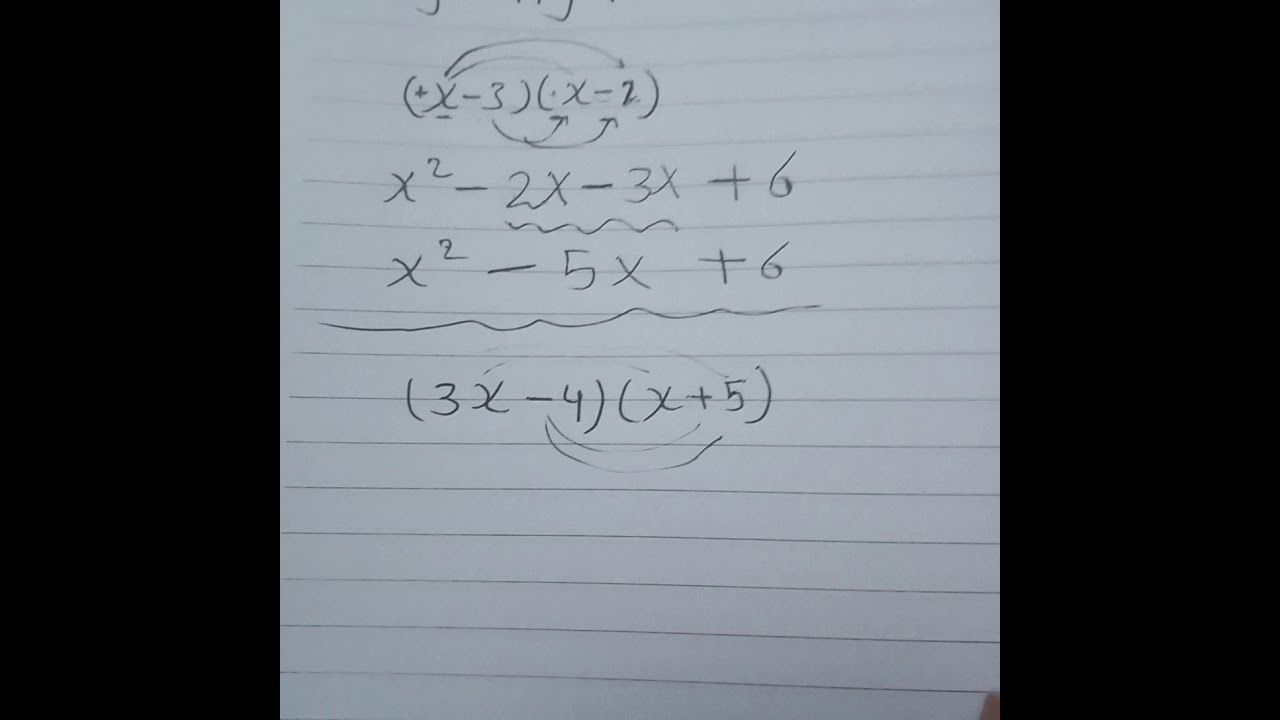 (+x-3)(·x-2)
x² - 2x - 3x + 6
x² - 5x + 6
(3x - 4)(x + 5)